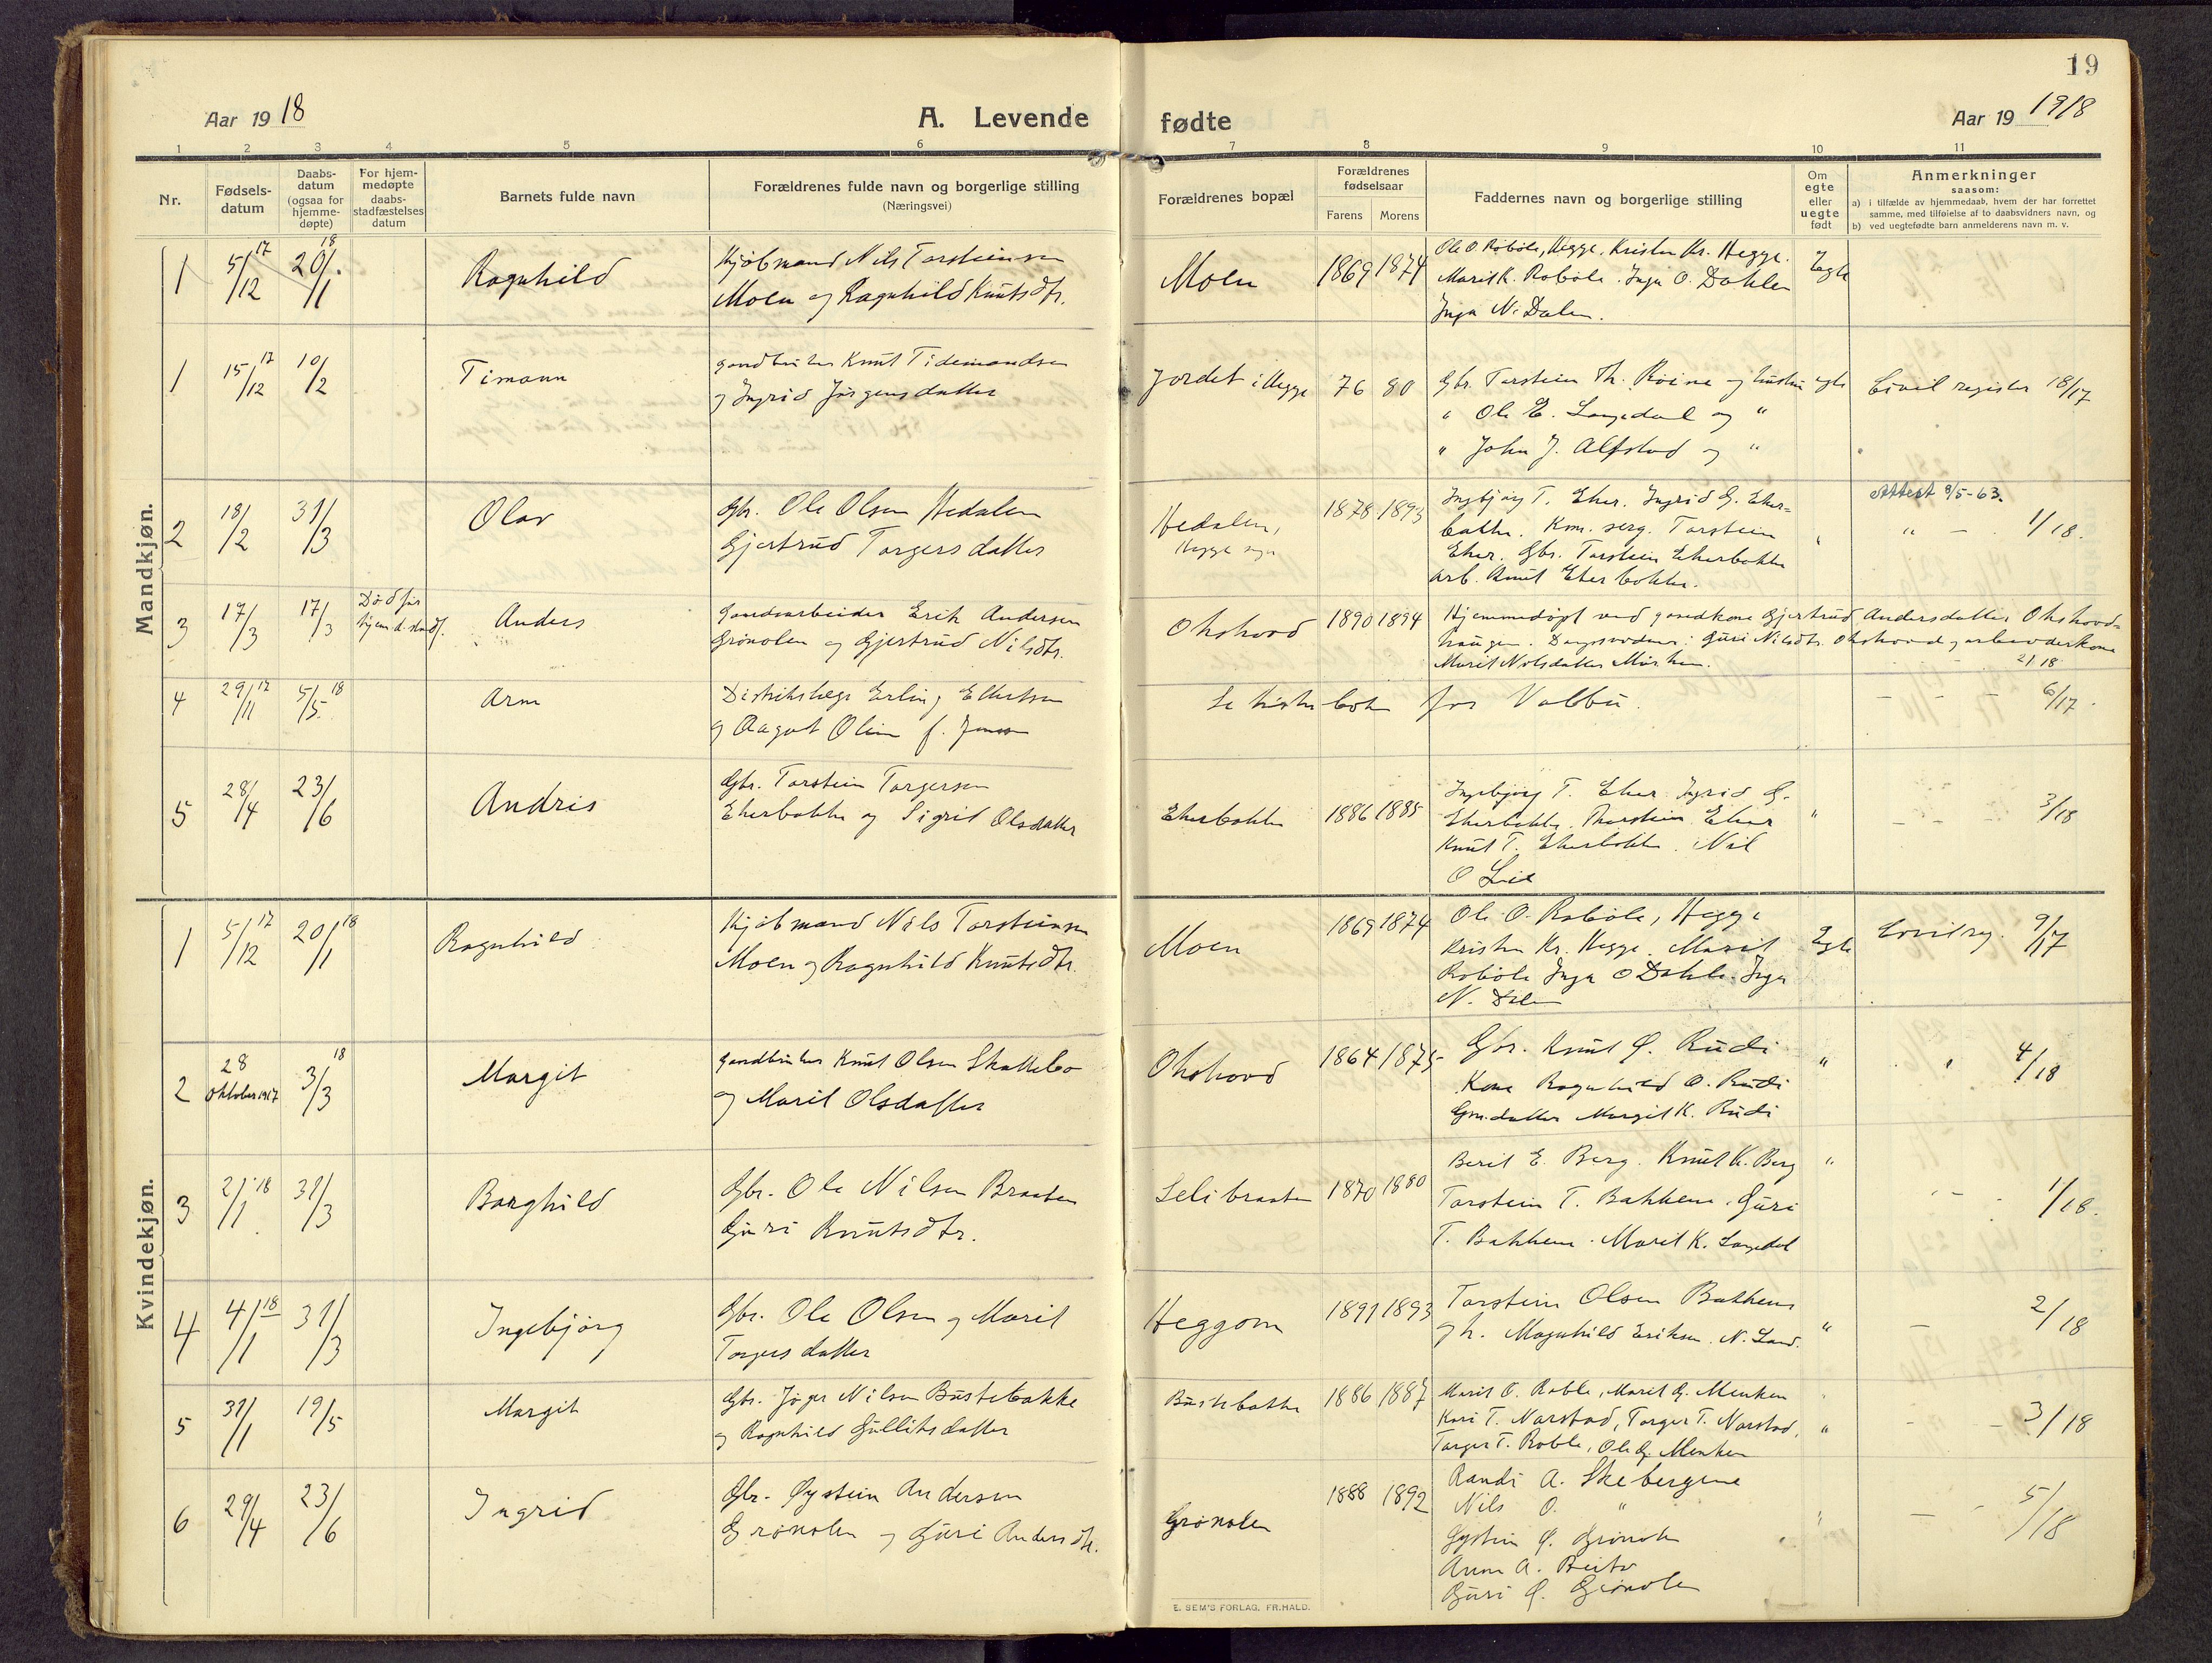 19
Aar 1918
A. Levende
fødte
Aar 19 1918
1 2 3 4 5 6 7 8 9 10 11
Nr.
Fødsels-
datum
Daabs-
datum
(ogsaa for
hjemme-
døpte)
For hjem-
medøpte
daabs-
stadfæstelses
datum
Barnets fulde navn
Forældrenes fulde navn og borgerlige stilling
(Næringsvei)
Forældrenes bopæl
Forældrenes
fødselsaar
Farens Morens
Faddernes navn og borgerlige stilling
Om
egte
eller
uegte
født
Anmerkninger
saasom:
a) i tilfælde av hjemmedaab, hvem der har forrettet
samme, med tilføielse af to daabsvidners navn, og
b) ved uegtefødte barn anmelderens navn m. v.
Mandkjøn.
1 5/12 17 20/1 18 Ragnhild
Kjøbmand Nils Torsteinsen
Moen og Ragnhild Knutsdtr.
Moen 1869 1874
Ole O Robøle, Hegge. Kristen Kr. Hegge.
Marit K. Robøle. Inga O. Dahlen
Inga N. Dalen.
Egte
1 15/12 17 10/2 Timann
gaardbruker Knut Tidemandsen
og Ingrid Jørgensdatter
Jordet i Hegge 76 80
Gbr. Torstein Th. Röine og hustru
" Ole E. Langedal og "
" John J. Alfstad og "
egte
Civil register 18/17
2 18/2 31/3 Olav
Gbr. Ole Olsen Hedalen
Gjertrud Torgersdatter
Hedalen,
Hegge sogn
1878 1893
Ingbjörg T. Eker. Ingrid G. Eker-
bakke. Kom. serg. Torstein
Eker. Gbr. Torstein Ekerbakke
arb. Knut Ekerbakke.
"
Attest 8/5-63.
" - 1/18.
3 17/3 17/3
Död før
hjem.d. stadf.
Anders
Gaardsarbeider Erik Andersen
Grønolen og Gjertrud Nilsdtr.
Okshovd 1890 1894
Hjemmedøpt ved gaardkone Gjertrud Andersdatter Okshovd-
haugen. Daapsvidner: Guri Nilsdtr. Okshovd og arbeiderkone
Marit Nilsdatter Mörken.
2/18
4 29/11 17 5/5 18 Arne
Distriktslæge Erling Ellertsen
og Aagot Oline f. Jensen
Se kirkebok for Volbu.
- - - 6/17.
5 28/4 23/6 Andris
Gbr. Torstein Torgersen
Ekerbakke og Sigrid Olsdatter
Ekerbakke 1886 1885
Ingebjørg T. Eker Ingrid G.
Ekerbakke. Thorstein Eker
Knut T. Ekerbakke. Nil
O Lie
"
- - - 3/18
Kvindekjøn.
1 5/12 17 20/1 18 Ragnhild
Kjøbmand Nils Torsteinsen
Moen og Ragnhild Knutsdtr.
Moen 1869 1874
Ole O. Robøle, Hegge
Kristen Kr. Hegge. Marit
Robøle Inga O Dahle. Inga
N. Dalen
Egte
Civilreg. 9/17
2 28
Oktober 1917
3/3 18 Margit
gaardbruker Knut Olsen Skattebo
og Marit Olsdatter
Okshovd 1864 1875
Gbr. Knut Ø. Rudi
Kone Ragnhild O. Rudi
Gmdatter Margit K. Rudi
"
" 4/18
3 2/1 18 31/3 Borghild
Gbr. Ole Nilsen Braaten
Guri Knutsdtr.
Selibraaten 1870 1880
Berit E. Berg. Knut K. Berg
Torstein T. Bakkene. Guri
T. Bakkene. Marit K. Langedal
"
" - - 1/18.
4 4/1 18 31/3 Ingebjørg
Gbr. Ole Olsen og Marit
Torgersdatter
Heggom 1891 1893
Torstein Olsen Bakkene
og h. Magnhild Eriksen. N. Land.
"
- 2/18
5 31/1 19/5 Margit
Gbr. Jøger Nilsen Bustebakke
og Ragnhild Gullitsdatter
Bustebakke 1886 1887
Marit O. Roble, Marit G. Menken
Kari T. Narstad, Torger T. Narstad,
Torger T. Roble, Ole G. Menken
"
- - 3/18
6 29/4 23/6 Ingrid
Gbr. Øystein Andersen
Grønolen og Guri Andersdtr.
Grønolen 1888 1892
Randi A. Skebergene
Nils O. "
Gystein Ø. Grønolen
Anne A. Beito
Guri Ø. Grønolen
"
- - 5/18
E. SEM'S FORLAG, FR.HALD.